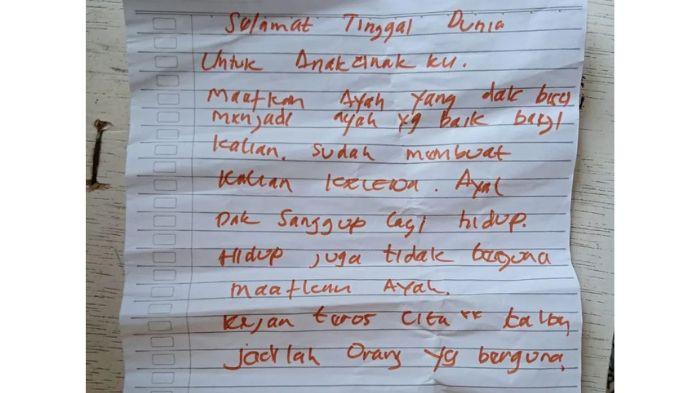 Selamat Tinggal Dunia
Untuk Anak anak ku.
Maafkan Ayah yang dak bisa
menjadi ayah yg baik bagi
Kalian. sudah membuat
Kalian kecewa. Ayah
Dak Sanggup lagi hidup.
Hidup juga tidak berguna
maafkan Ayah.
Kejan teros Cita"
jadilah Orang yg berguna,